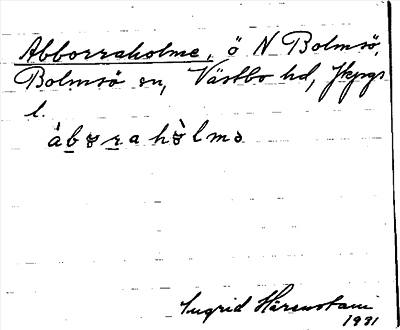 Abborraholme, ö N Bolmsö,
Bolmsö sn, Västbo hd, Jkpgs
l.
àbɵra hɵ̀lmə
Ingrid Härenstam
1931